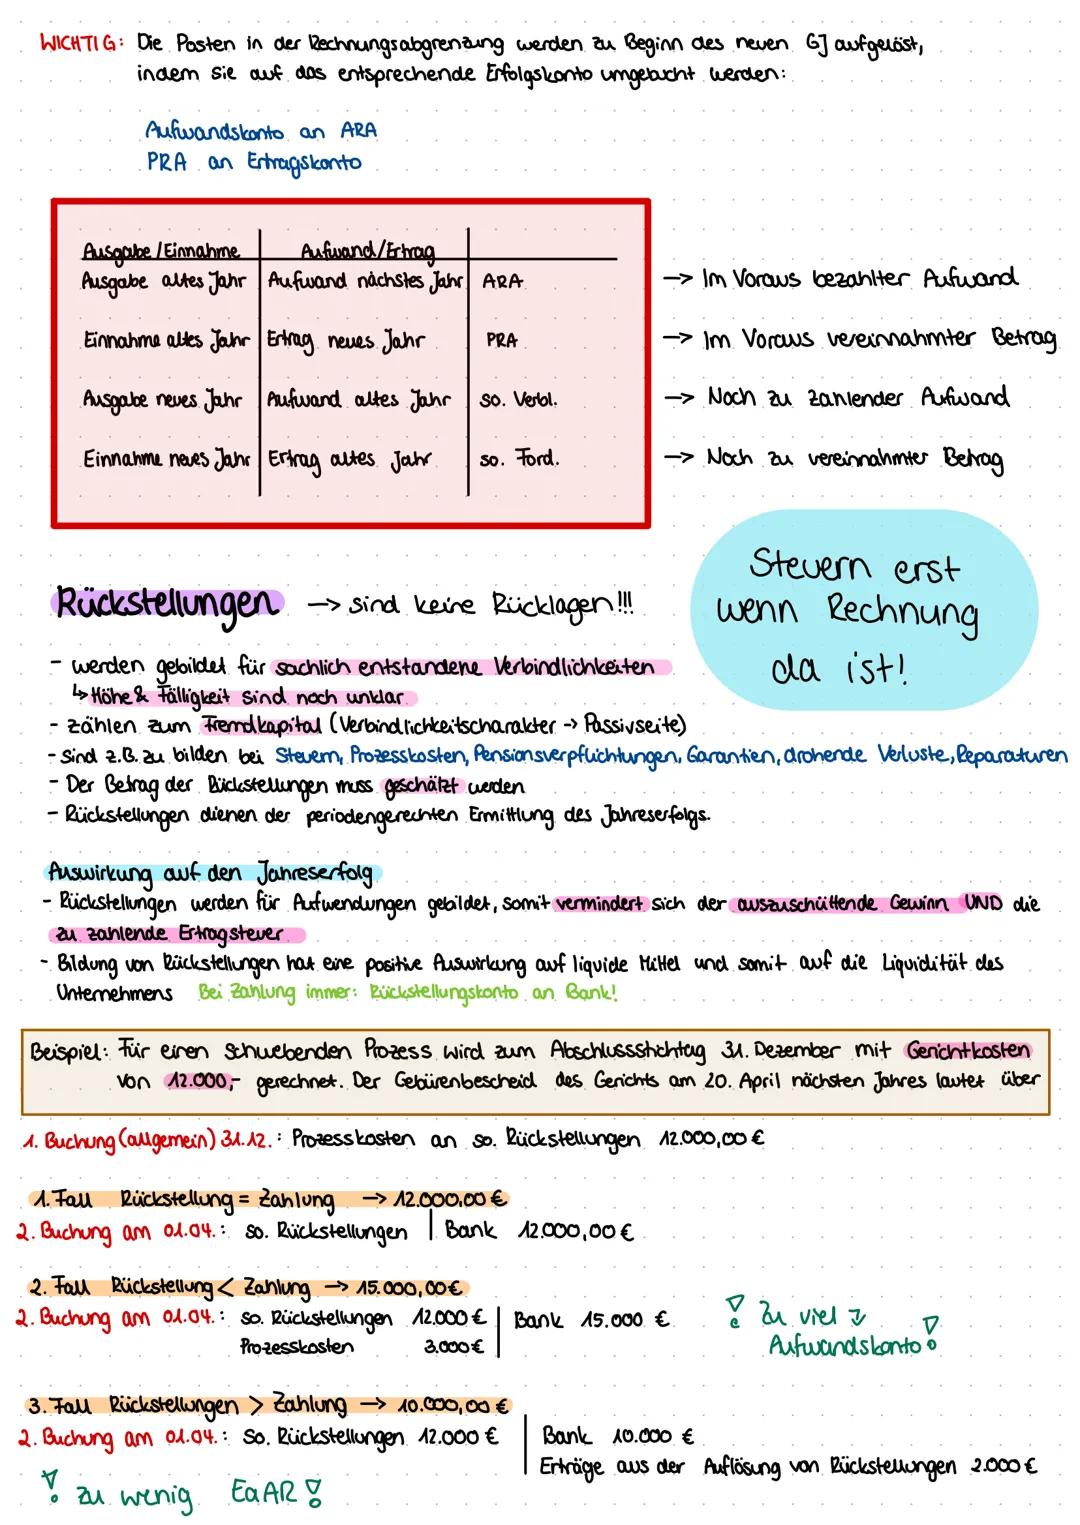 WICHTIG: Die Posten in der Rechnungsabgrenzung werden zu Beginn des neuen GJ aufgelöst,
indem sie auf das entsprechende Erfolgskonto umgebucht werden:
Aufwandskonto an ARA
PRA an Ertragskonto
Ausgabe / Einnahme Aufwand/Ertrag
Ausgabe altes Jahr Aufwand nächstes Jahr ARA → Im Voraus bezahlter Aufwand
Einnahme altes Jahr Ertrag neues Jahr PRA → Im Voraus vereinnahmter Betrag
Ausgabe neues Jahr Aufwand altes Jahr so. Verbl. → Noch zu zahlender Aufwand
Einnahme neues Jahr Ertrag altes Jahr so. Ford. → Noch zu vereinnahmter Betrag
Steuern erst
wenn Rechnung
da ist!
Rückstellungen → sind keine Rücklagen!!!
- werden gebildet für sachlich entstandene Verbindlichkeiten
↳ Höhe & Fälligkeit sind noch unklar
- zählen zum Fremdkapital (Verbindlichkeitscharakter → Passivseite)
- Sind z.B. zu bilden bei Steuern, Prozesskosten, Pensionsverpflichtungen, Garantien, drohende Verluste, Reparaturen
- Der Betrag der Rückstellungen muss geschätzt werden
- Rückstellungen dienen der periodengerechten Ermittlung des Jahreserfolgs.
Auswirkung auf den Jahreserfolg
- Rückstellungen werden für Aufwendungen gebildet, somit vermindert sich der auszuschüttende Gewinn UND die
zu zahlende Ertragsteuer
- Bildung von Rückstellungen hat eine positive Auswirkung auf liquide Mittel und somit auf die Liquidität des
Unternehmens Bei Zahlung immer: Rückstellungskonto an Bank!
Beispiel: Für einen schwebenden Prozess wird zum Abschlussstichtag 31. Dezember mit Gerichtkosten
von 12.000,- gerechnet. Der Gebürenbescheid des Gerichts am 20. April nächsten Jahres lautet über
1. Buchung (allgemein) 31.12.: Prozesskosten an so. Rückstellungen 12.000,00 €
1. Fall Rückstellung = Zahlung → 12.000,00 €
2. Buchung am 01.04.: so. Rückstellungen | Bank 12.000,00 €
2. Fall Rückstellung < Zahlung → 15.000,00 €
2. Buchung am 01.04.: so. Rückstellungen 12.000 € | Bank 15.000 €
Prozesskosten 3.000 €
! Zu viel →
Aufwandskonto !
3. Fall Rückstellungen > Zahlung → 10.000,00 €
2. Buchung am 01.04.: So. Rückstellungen 12.000 € | Bank 10.000 €
Erträge aus der Auflösung von Rückstellungen 2.000 €
! zu wenig EaAR !